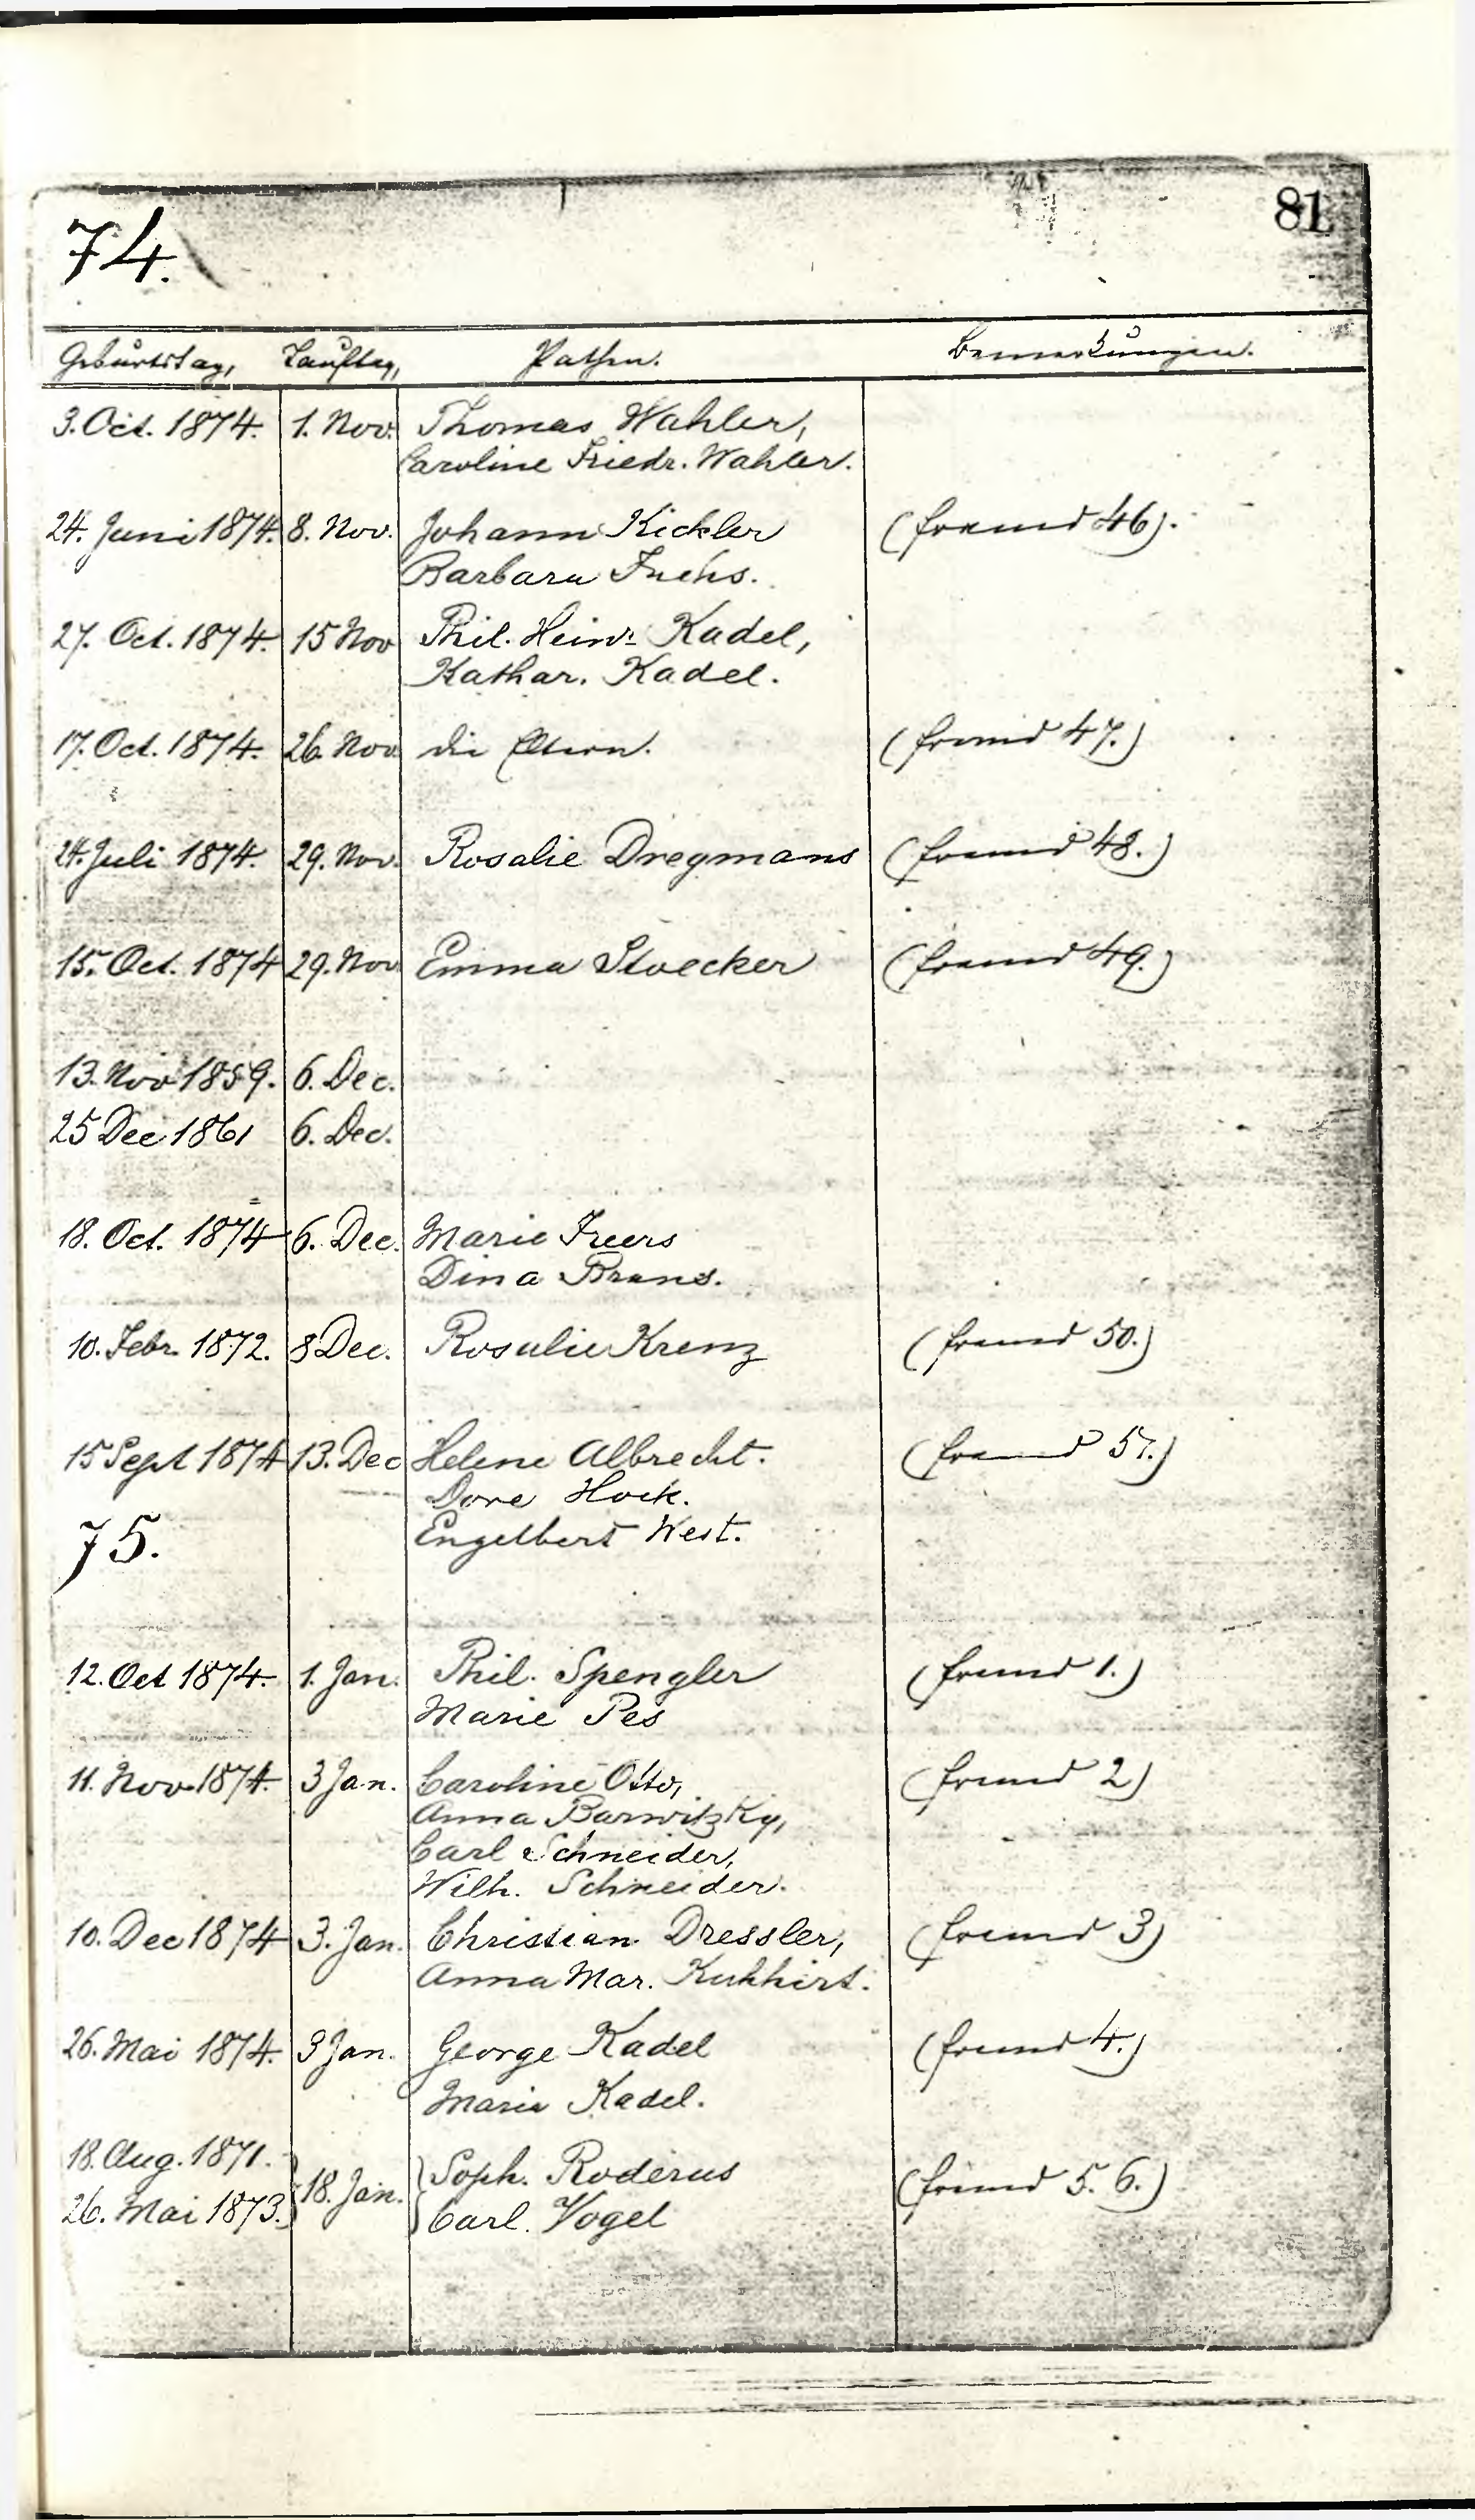 81
74.
Geburtstag, Tauftag, Pathen. Bemerkungen.
3. Oct. 1874. 1. Nov. Thomas Wahler,
Caroline Friedr. Wahler.
24. Juni 1874. 8. Nov. Johann Kickler (fremd 46).
Barbara Fuchs.
27. Oct. 1874. 15 Nov Phil. Heinr. Kadel,
Kathar. Kadel.
17. Oct. 1874. 26. Nov. die Eltern. (fremd 47.)
24. Juli 1874. 29. Nov. Rosalie Dregmans (fremd 48.)
15. Oct. 1874 29. Nov Emma Stoecker (fremd 49.)
13. Nov 1859. 6. Dec.
25 Dec 1861 6. Dec.
18. Oct. 1874 6. Dec. Marie Freers
Dina Brans.
10. Febr. 1872. 8 Dec. Rosalie Krenz (fremd 50.)
15 Sept 1874 13. Dec Helene Albrecht. (fremd 51.)
Dore Hock.
75. Engelbert West.
12. Oct 1874. 1. Jan. Phil. Spengler (fremd 1.)
Marie Pes
11. Nov. 1874. 3 Jan. Caroline Otto, (fremd 2)
Anna Barwitzky,
Carl Schneider,
Wilh. Schneider.
10. Dec 1874 3. Jan. Christian Dressler, (fremd 3)
Anna Mar. Kuhhirt.
26. Mai 1874. 3 Jan. George Kadel (fremd 4.)
Marie Kadel.
18. Aug. 1871. } 18. Jan. } Soph. Roderus (fremd 5. 6.)
26. Mai 1873. Carl. Vogel